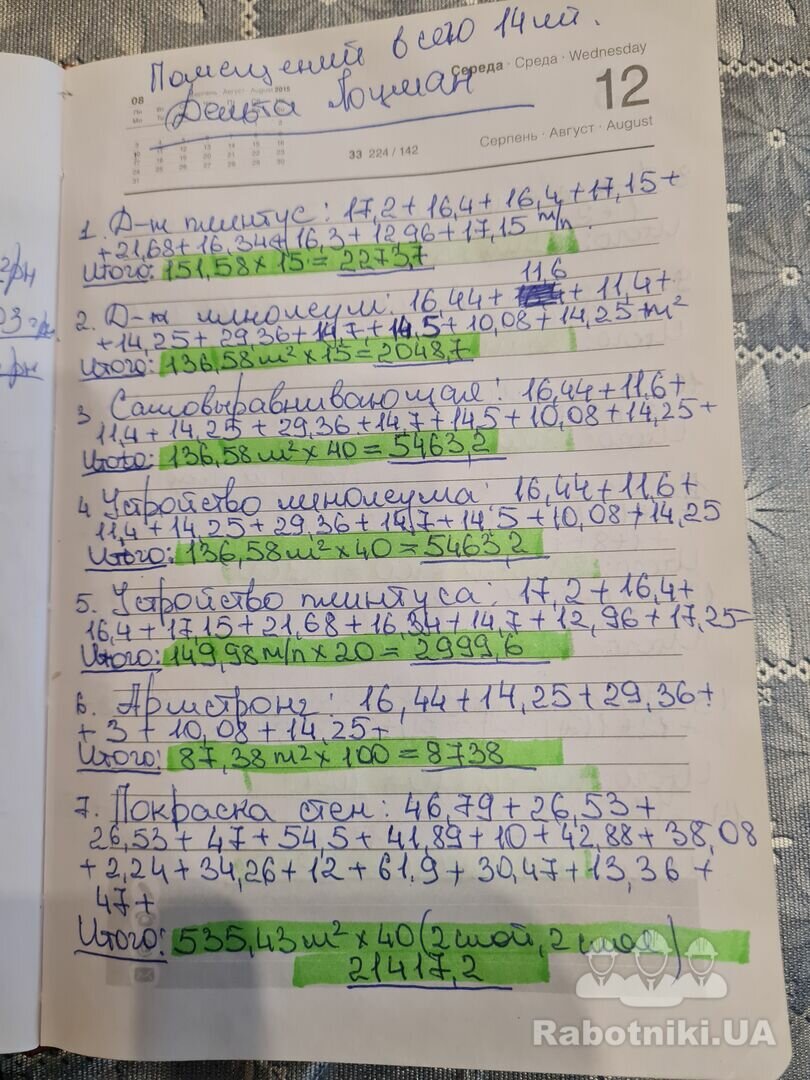 Помещений всего 14 шт.
Середа · Среда · Wednesday
08
Серпень Август August 2015
12
Дельта Лоцман
33 224 / 142
Серпень · Август · August
1. Д-ж плинтус: 17,2 + 16,4 + 16,4 + 17,15 +
+ 21,68 + 16,34 + 16,3 + 12,96 + 17,15 м/п.
Итого: 151,58 х 15 = 2273,7
11,6
2. Д-ж линолеум: 16,44 + + 11,4 +
+ 14,25 + 29,36 + 14,7 + 14,5 + 10,08 + 14,25 + м²
Итого: 136,58 м² х 15 = 2048,7
3 Самовыравнивающая: 16,44 + 11,6 +
11,4 + 14,25 + 29,36 + 14,7 + 14,5 + 10,08 + 14,25 +
Итого: 136,58 м² х 40 = 5463,2
4 Устройство линолеума: 16,44 + 11,6 +
11,4 + 14,25 + 29,36 + 14,7 + 14,5 + 10,08 + 14,25
Итого: 136,58 м² х 40 = 5463,2
5. Устройство плинтуса: 17,2 + 16,4 +
16,4 + 17,15 + 21,68 + 16,34 + 14,7 + 12,96 + 17,25 =
Итого: 149,98 м/п х 20 = 2999,6
6. Армстронг: 16,44 + 14,25 + 29,36 +
+ 3 + 10,08 + 14,25 +
Итого: 87,38 м² х 100 = 8738
7. Покраска стен: 46,79 + 26,53 +
26,53 + 47 + 54,5 + 41,89 + 10 + 42,88 + 38,08
+ 2,24 + 34,26 + 12 + 61,9 + 30,47 + 13,36 +
47 +
Итого: 535,43 м² х 40 (2 слой, 2 слоя)
21417,2
Rabotniki.UA